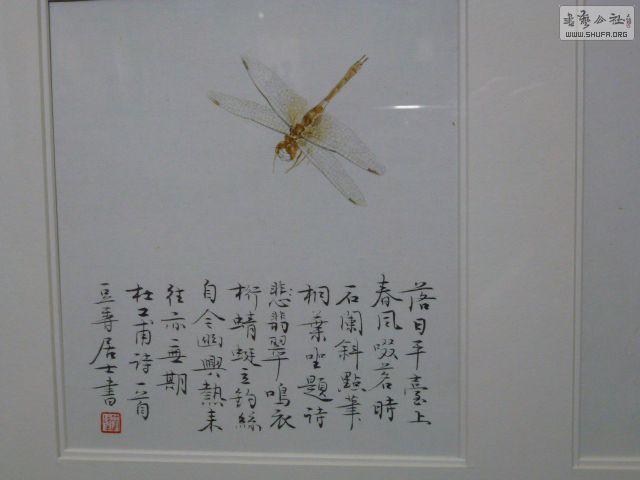 落日平臺上
春風啜茗時
石闌斜點筆
桐葉坐題詩
悲翡翠鳴衣
桁蜻蜓立釣絲
自今幽興熟来
往亦無期
杜工甫詩一首
豆寿居士書
書藝公社
WWW.SHUFA.ORG